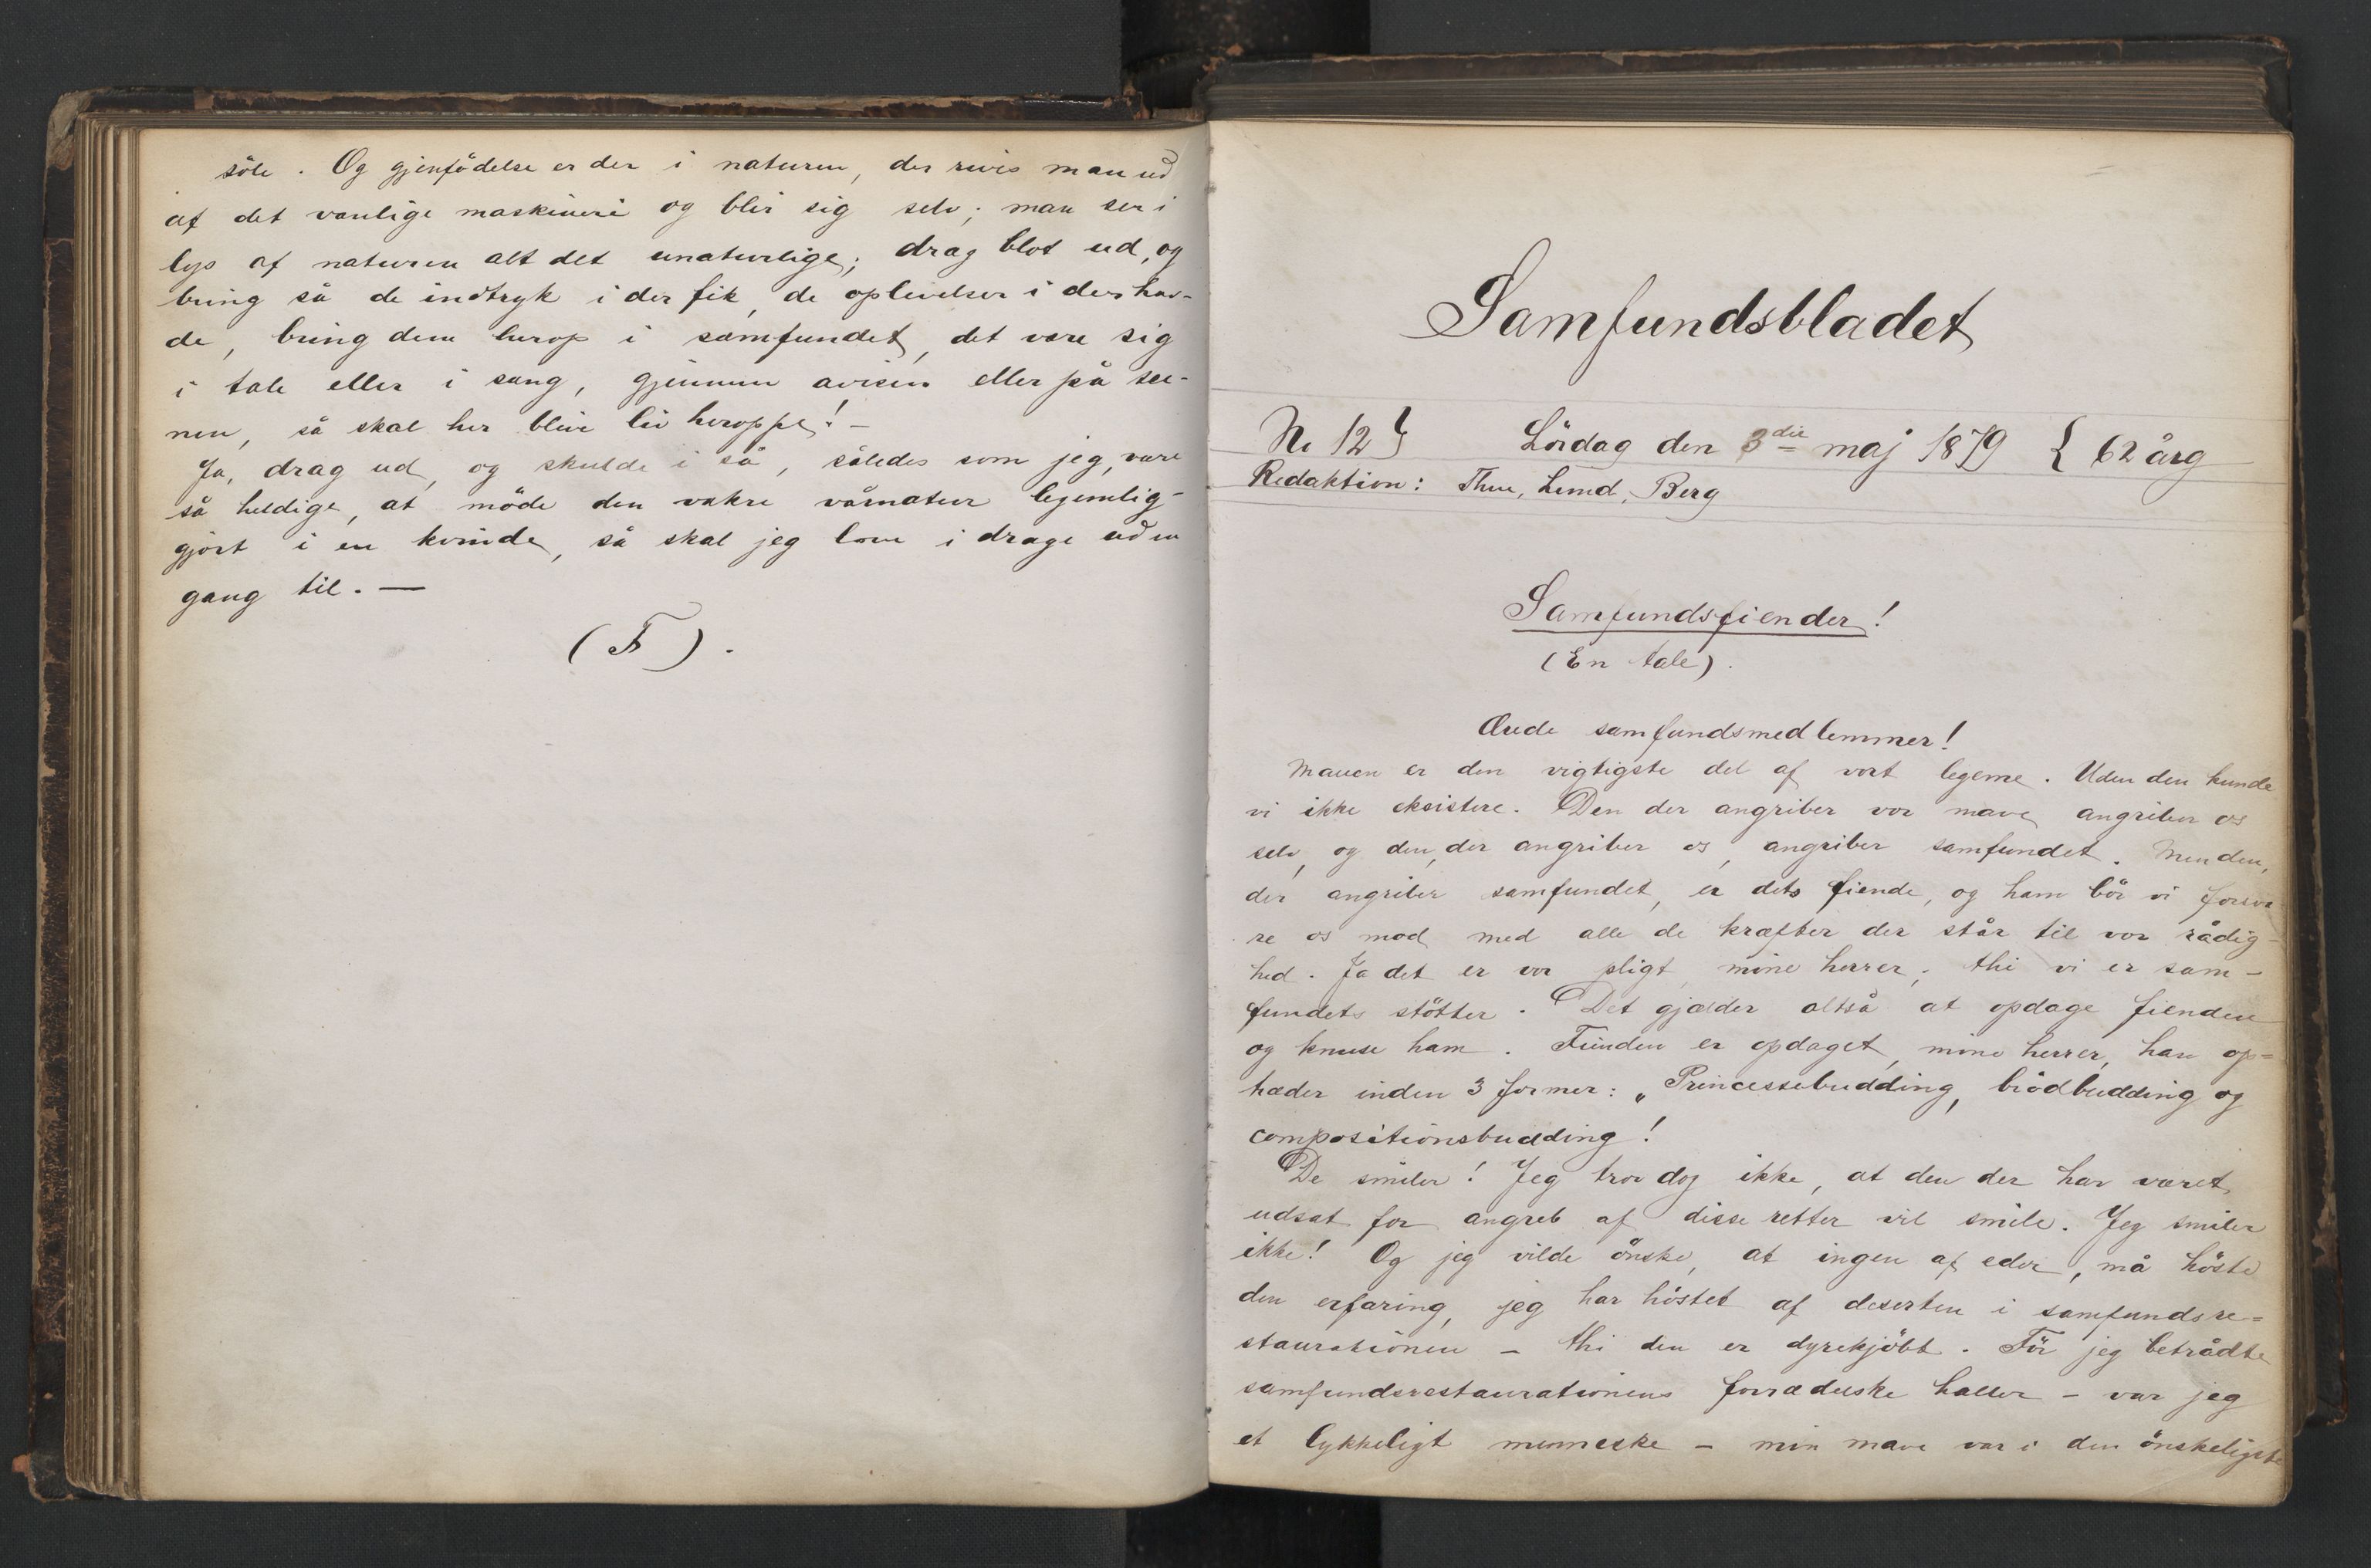 söle. Og gjenfödelse er der i naturen, der rives man ud
af det vanlige maskineri og blir sig selv; man ser i
lys af naturen alt det unaturlige; drag blot ud, og
bring så de indtryk i der fik, de oplevelser i der hav-
de, bring dem herop i samfundet, det være sig
i tale eller i sang, gjennem avisen eller på sce-
nen, så skal her blive liv heroppe! —
Ja, drag ud, og skulde i så, således som jeg, være
så heldige, at möde den vakre vårnatur legemlig-
gjort i en kvinde, så skal jeg love i drage ud en
gang til. —
(F).
Samfundsbladet
No 12} Lördag den 3die maj 1879 { 62 årg
Redaktion: Thue, Lund, Berg
Samfundsfiender!
(En tale).
Ærede samfundsmedlemmer!
Maven er den vigtigste del af vort legeme. Uden den kunde
vi ikke eksistere. Den der angriber vor mave, angriber os
selv, og den, der angriber os, angriber samfundet. Men den,
der angriber samfundet, er dets fiende, og ham bör vi forsva
re os mod med alle de kræfter der står til vor rådig-
hed. Ja det er vor pligt, mine herrer, thi vi er sam-
fundets stötter. Det gjælder altså at opdage fienden
og knuse ham. Fienden er opdaget, mine herrer, han op=
træder inden 3 former: „Princessebudding, brödbudding og
compositionsbudding!
De smiler! Jeg tror dog ikke, at den der har været
udsat for angreb af disse retter vil smile. Jeg smiler
ikke! Og jeg vilde önske, at ingen af eder, må höste
den erfaring, jeg har höstet af deserten i samfundsre=
staurationen – thi den er dyrekjöbt. För jeg betrådte
samfundsrestaurationens forræderske haller – var jeg
et lykkeligt menneske – min mave var i den önskeligste